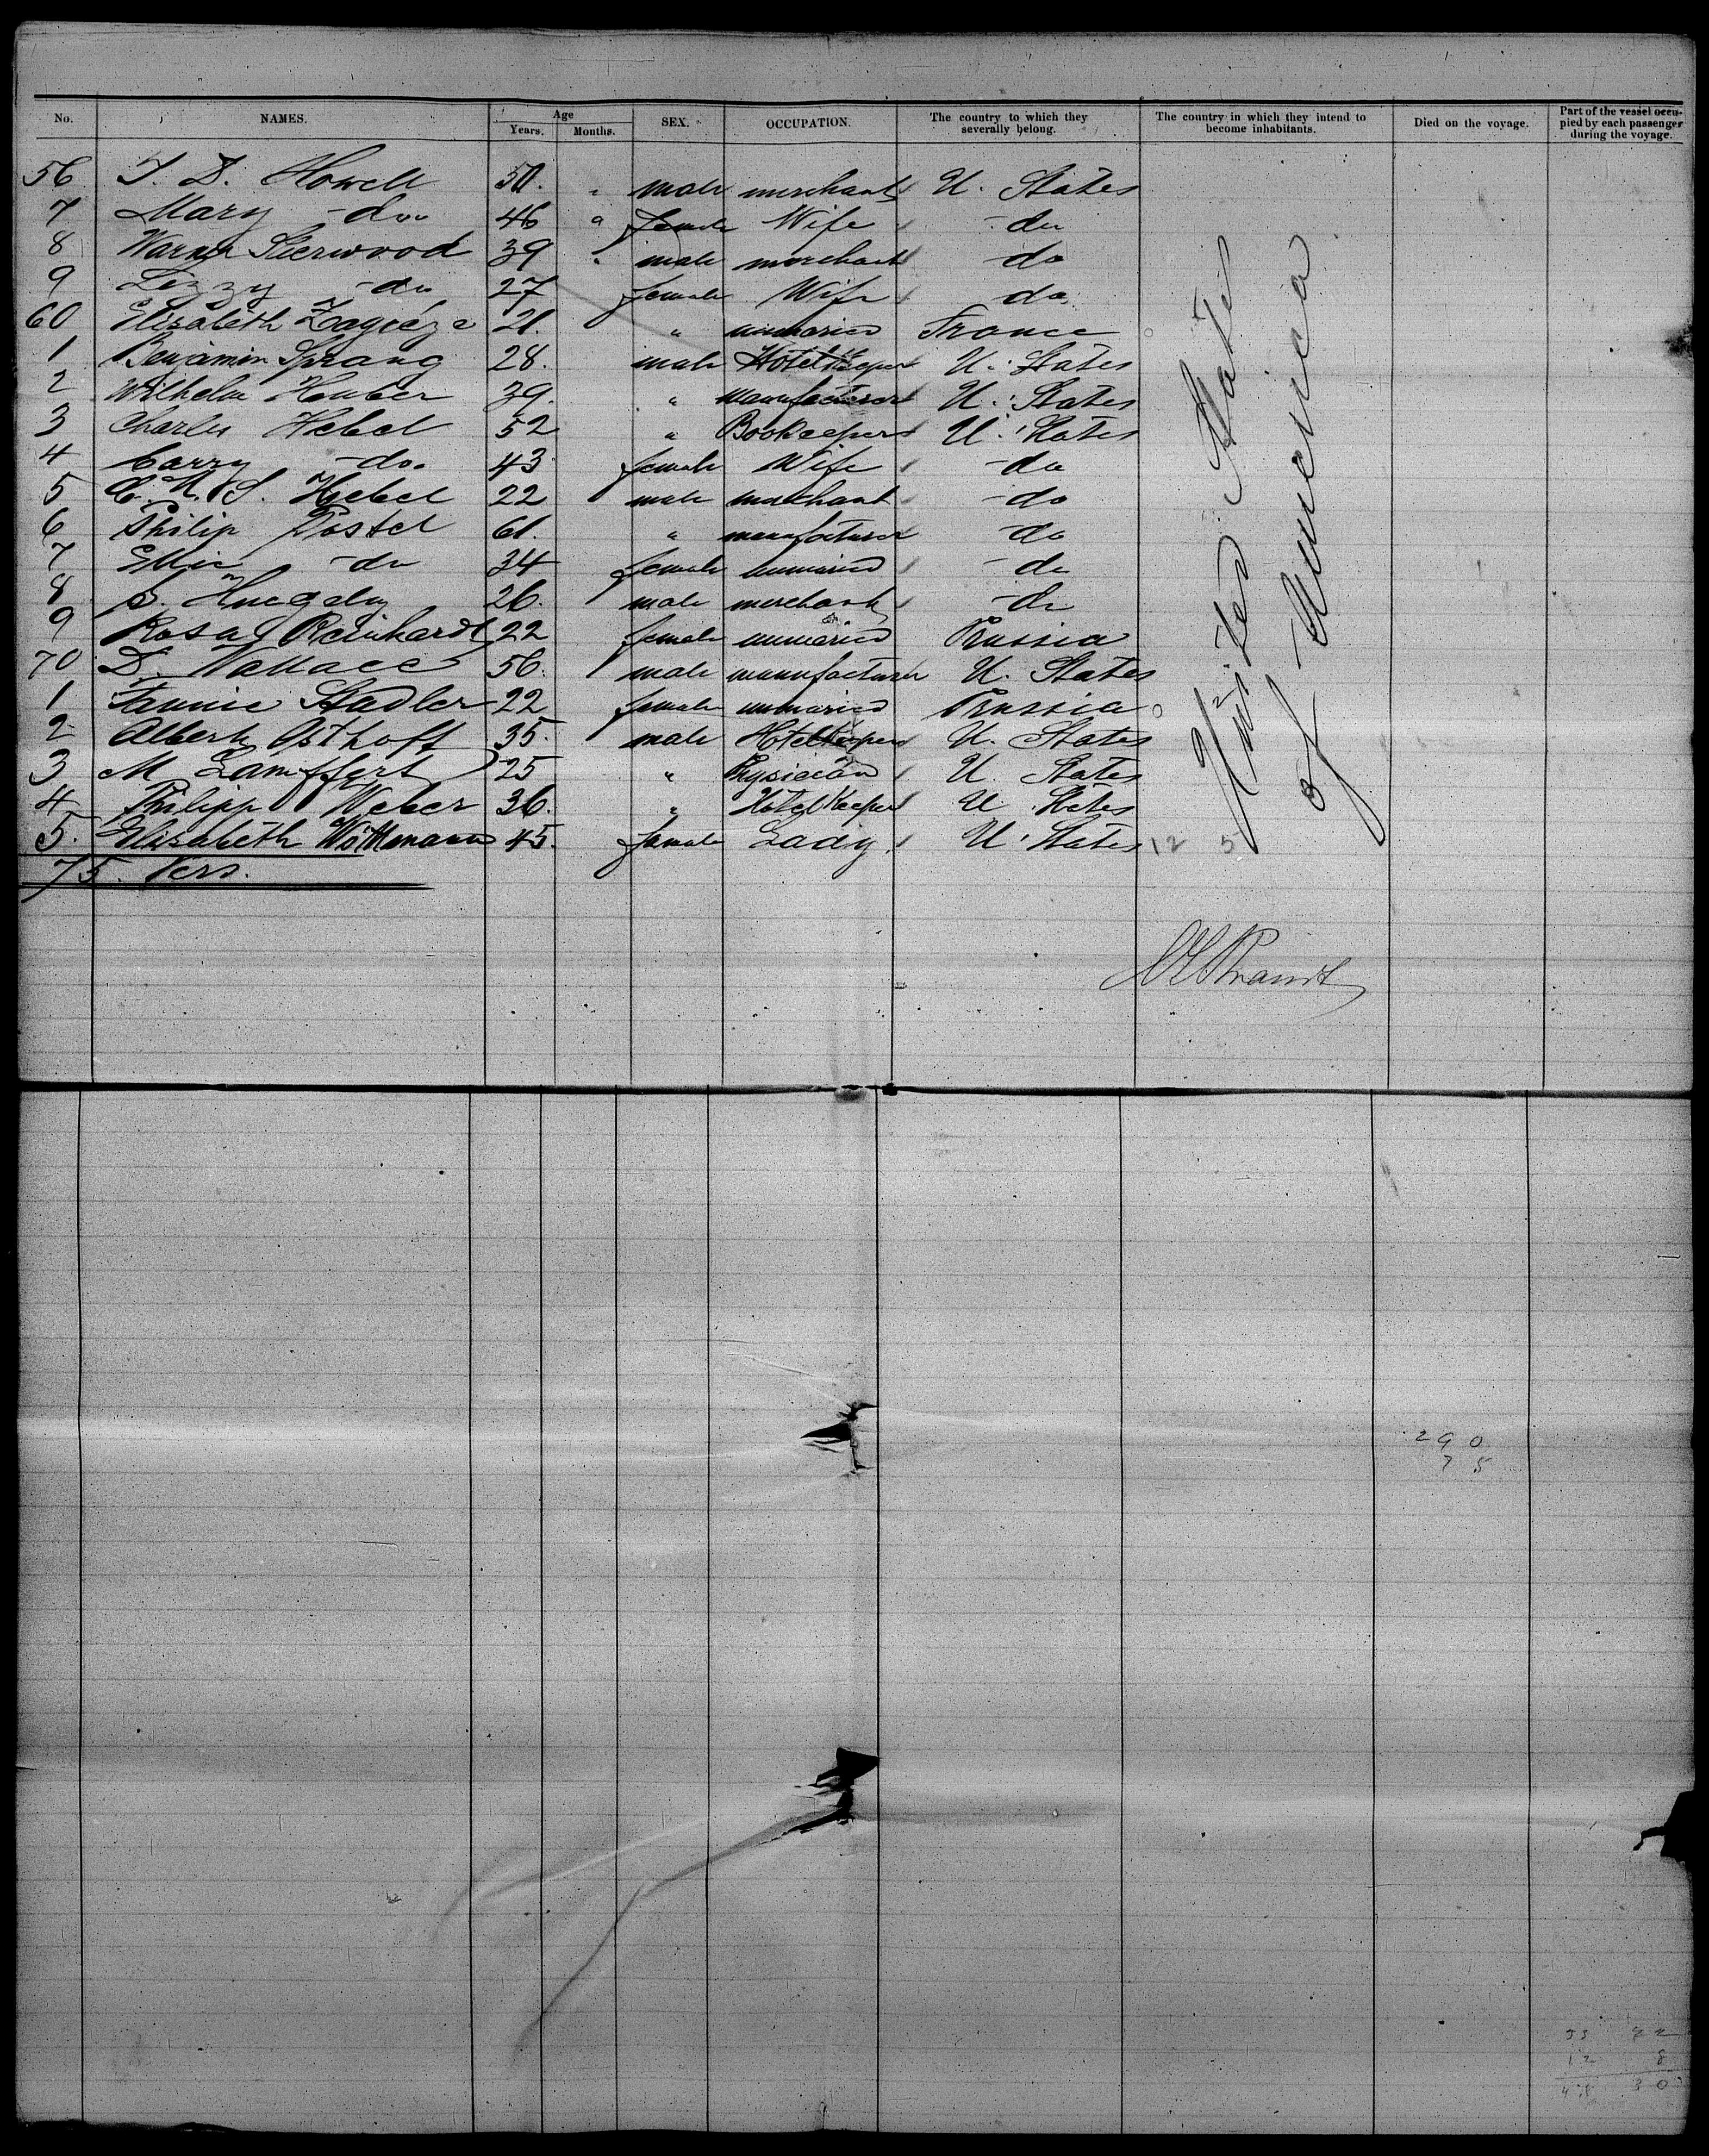 No. NAMES. Age Years. Months. SEX. OCCUPATION. The country to which they severally belong. The country in which they intend to become inhabitants. Died on the voyage. Part of the vessel occupied by each passenger during the voyage.
56 T. D. Howell 50. " male merchant U. States
7 Mary - do. 46 " female Wife - do
8 Warner Sherwood 39 " male merchant - do
9 Lizzy - do 27 female Wife - do
60 Elizabeth 21. " unmaried France
1 Benjamin Sprang 28. male Hotelkeeper U. States
2 Wilhelm 39. " manufacturer U. States
3 Charles Hebel 52 " Bookeeper U. States
4 Carry - do. 43 female Wife - do
5 C. W. S. Hebel 22 male merchant - do
6 Philip Postel 61. " manufacturer - do
7 Ellis - do 34 female unmaried - do
8 S. 26. male merchant - do
9 Rosa Reinhardt 22 female unmaried Prussia
70 D. Wallace 56. male manufacturer U. States
1 Fannie Stadler 22 female unmaried Prussia
2 Albert Osthoff 35. male Hotelkeeper U. States
3 M 25 " Physician U. States
4 Philipp Weber 36. " Hotel Keeper U. States
5. Elizabeth 45. female Lady U. States 12 5
75. Pers.
United States
of America
290
75
33 22
12 8
45 30